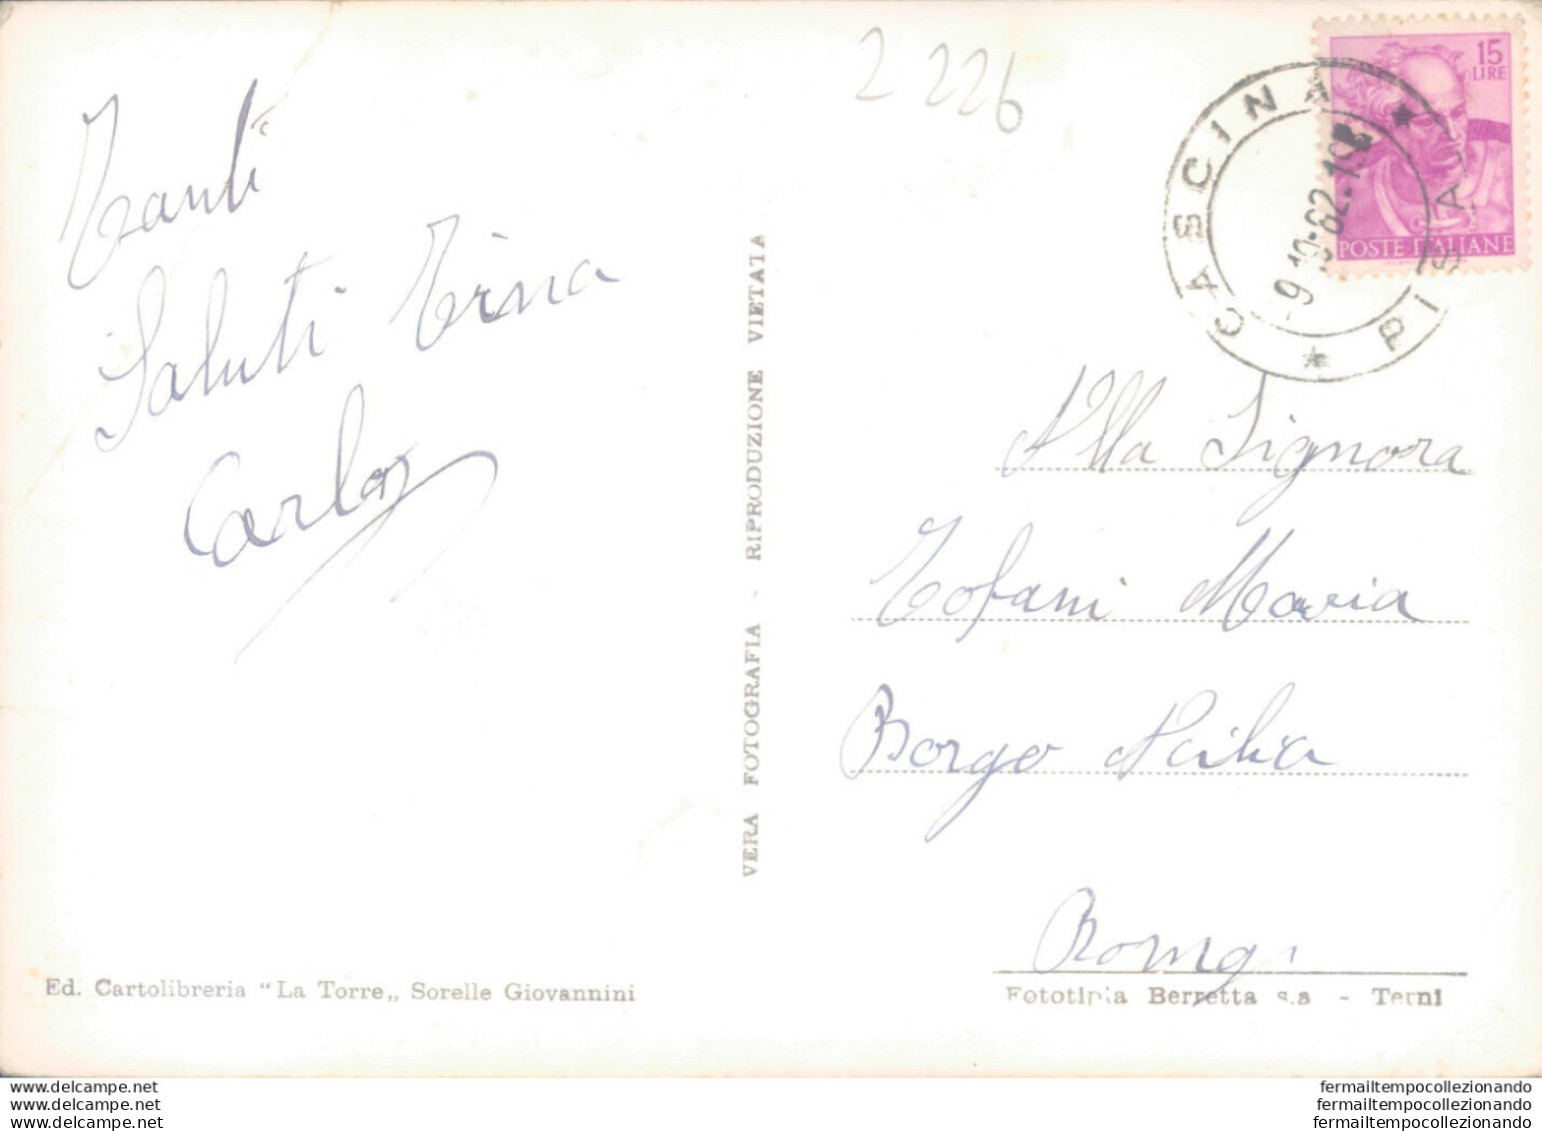 2 226
15
LIRE
POSTE ITALIANE
CASCINA
PISA
-9.10-62.19
Tanti
Saluti Tina
Carlo
Alla Signora
Tofani Maria
Borgo
Roma
VERA FOTOGRAFIA - RIPRODUZIONE VIETATA
Ed. Cartolibreria "La Torre„ Sorelle Giovannini
Fototipia Berretta s.a - Terni
www.delcampe.net
www.delcampe.net
www.delcampe.net
fermailtempocollezionando
fermailtempocollezionando
fermailtempocollezionando